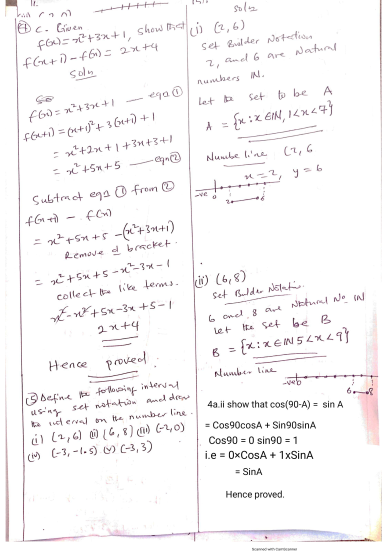 ④ c. Given
f(x) = x²+3x+1, show that
f(x+1)-f(x) = 2x+4
Soln
f(x) = x²+3x+1 — eqn ①
f(x+1) = (x+1)²+3(x+1)+1
= x²+2x+1+3x+3+1
= x²+5x+5 — eqn ②
Subtract eqn ① from ②
f(x+1) - f(x)
= x²+5x+5-(x²+3x+1)
Remove bracket.
= x²+5x+5-x²-3x-1
collect the like terms.
x²-x²+5x-3x+5-1
2x+4
Hence proved.
⑤ Define the following interval
using set notation and draw
the interval on the number line.
(i) (2,6) (ii) (6,8) (iii) (-2,0)
(iv) (-3,-1.5) (v) (-3,3)
Soln
(i) (2,6)
Set Builder Notation
2, and 6 are Natural
numbers IN.
Let the set to be A
A = {x: x∈IN, 1<x<7}
Number line (2,6
x=2, y=6
-ve 0
2 6
(ii) (6,8)
Set Builder Notation.
6 and 8 are Natural No IN
Let the set be B
B = {x: x∈IN 5<x<9}
Number line
-ve 0
6 8
4a.ii show that cos(90-A) = sin A
= Cos90cosA + Sin90sinA
Cos90 = 0 sin90 = 1
i.e = 0×CosA + 1xSinA
= SinA
Hence proved.
Scanned with CamScanner